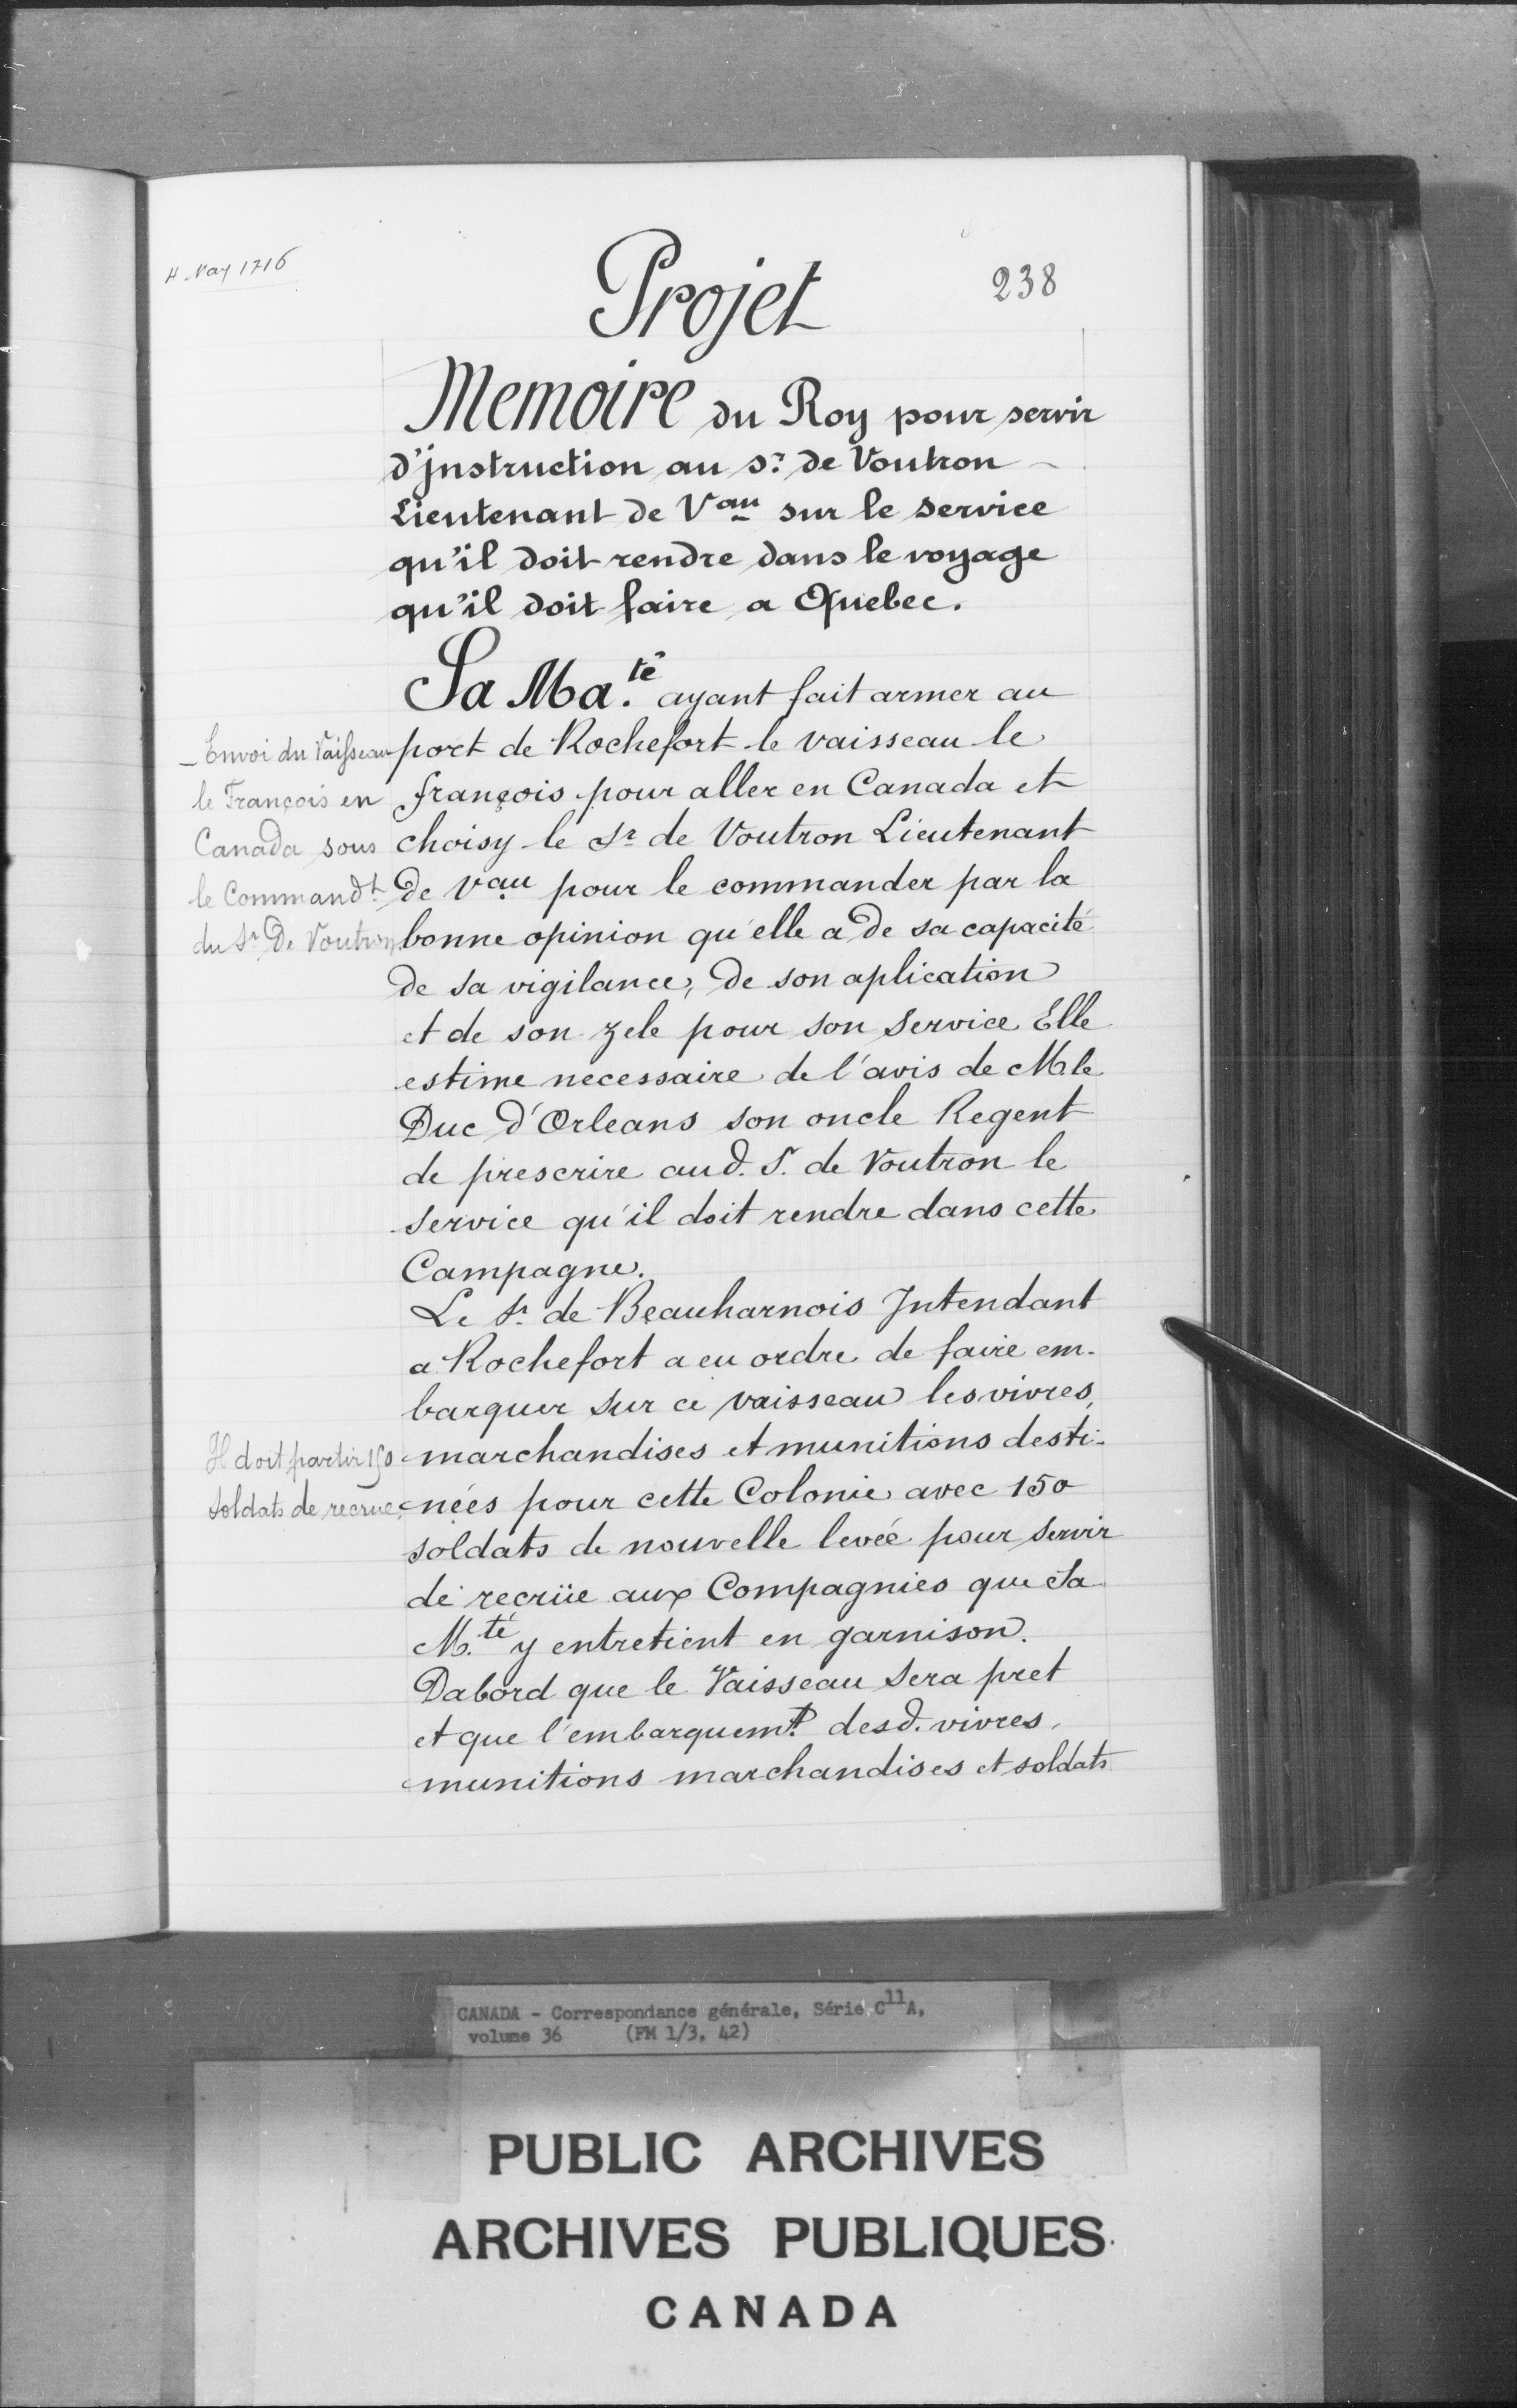 4 May 1716
238
Projet
Memoire du Roy pour servir
d'jnstruction au Sr. de Voutron
Lieutenant de Vau sur le service
qu'il doit rendre dans le voyage
qu'il doit faire a Quebec.
Sa Ma.té ayant fait armer au
port de Rochefort le vaisseau le
françois pour aller en Canada et
choisy le Sr de Voutron Lieutenant
de vau pour le commander par la
bonne opinion qu'elle a de sa capacité
de sa vigilance, de son aplication
et de son zele pour son service Elle
estime necessaire de l'avis de M. le
Duc d'Orleans son oncle Regent
de prescrire aud. S. de Voutron le
service qu'il doit rendre dans cette
Campagne.
_ Envoi du Vaisseau
le François en
Canada sous
le Commandt
du Sr De Voutron
Le Sr. de Beauharnois Intendant
a Rochefort a eu ordre de faire em-
barquer sur ce vaisseau les vivres,
marchandises et munitions desti-
nées pour cette Colonie avec 150
soldats de nouvelle levée pour servir
de recrüe aux Compagnies que Sa
M.té y entretient en garnison.
Il doit partir 150
soldats de recrue.
Dabord que le Vaisseau sera pret
et que l'embarquemt. desd. vivres,
munitions marchandises et soldats
CANADA - Correspondance générale, Série C11A,
volume 36 (FM 1/3, 42)
PUBLIC ARCHIVES
ARCHIVES PUBLIQUES
CANADA